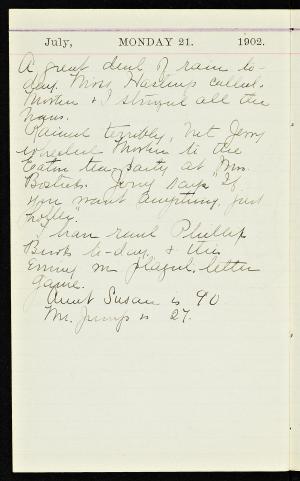 July, MONDAY 21. 1902.
A great deal of rain to-
day. Miss Hastings called.
Mother & I stayed all the
Rained terribly, but Jerry
wheeled Mother to the
Eaton tea-party at Mrs.
Jerry says "If
you want anything, just
holler."
I have read Phillips
Brooks to-day, & this
Evening we played letter
game.
Aunt Susan is 90.
Mr. Jump is 27.